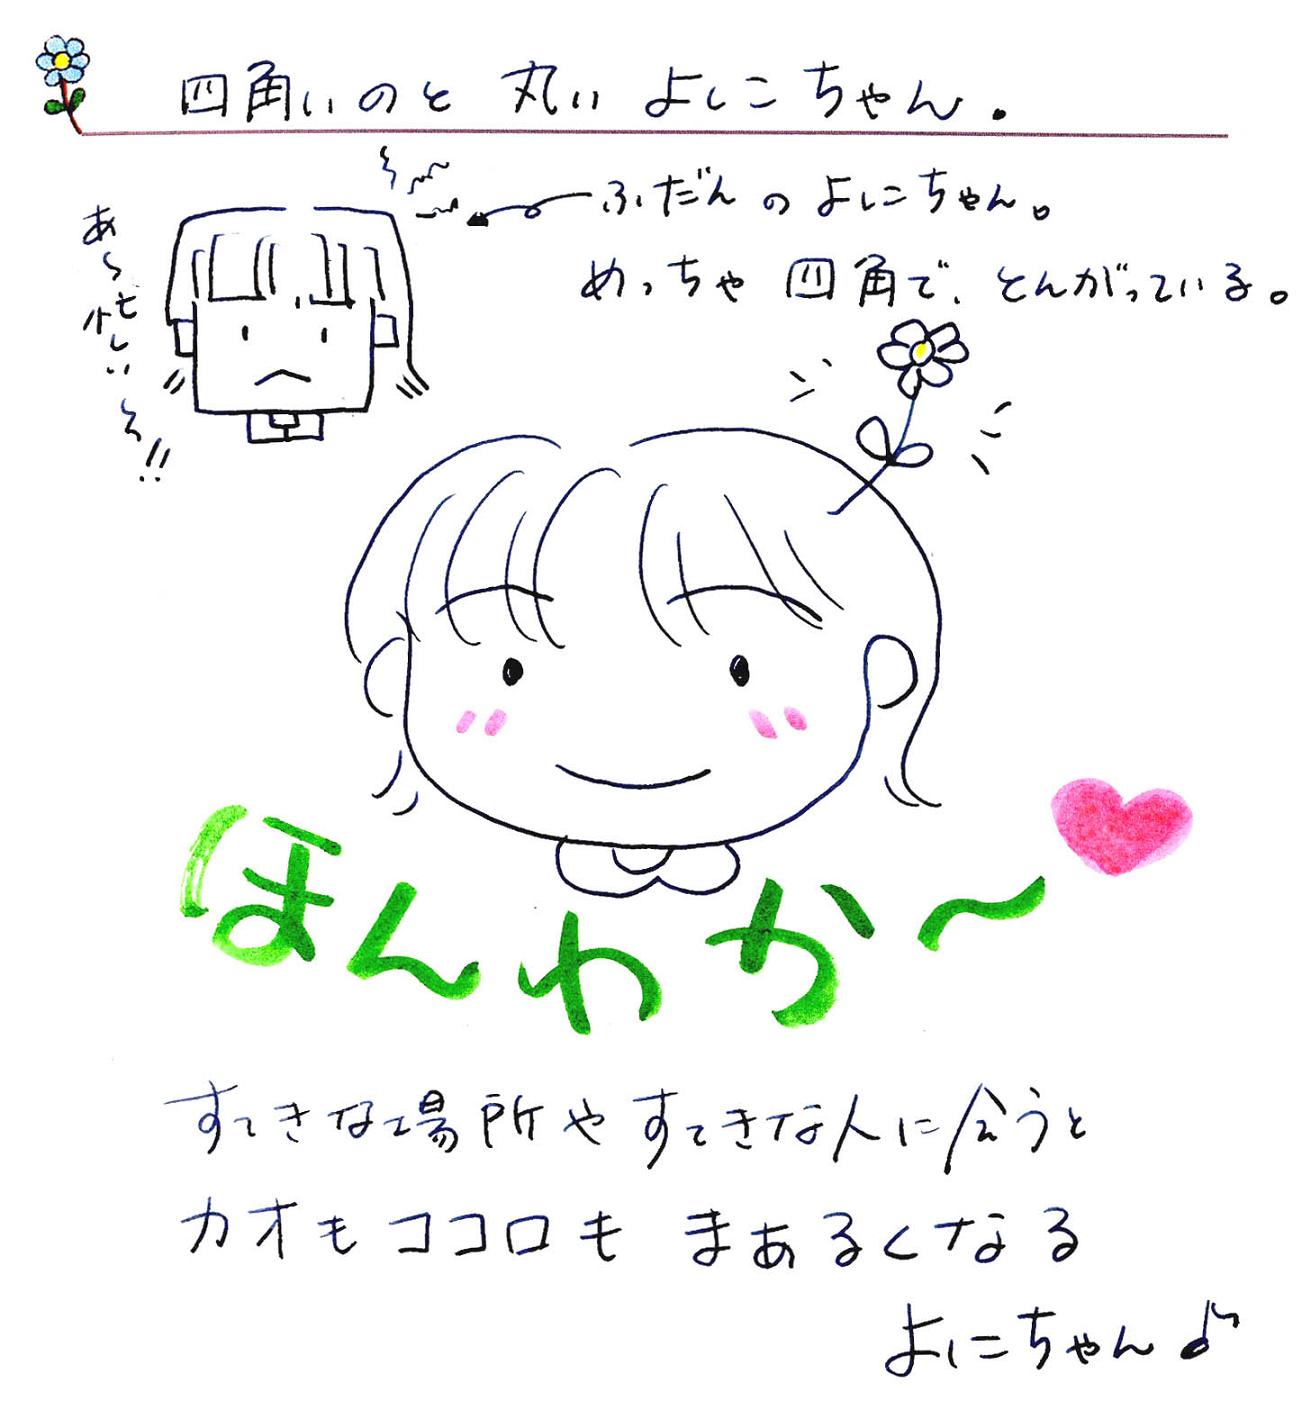 四角いのと 丸い よしこちゃん.
ふだん の よしこちゃん。
めっちゃ 四角で、とんがっている。
あ〜忙しい〜!!
ほんわか〜
すてきな場所やすてきな人に会うと
カオもココロも まあるくなる
よしこちゃん♪